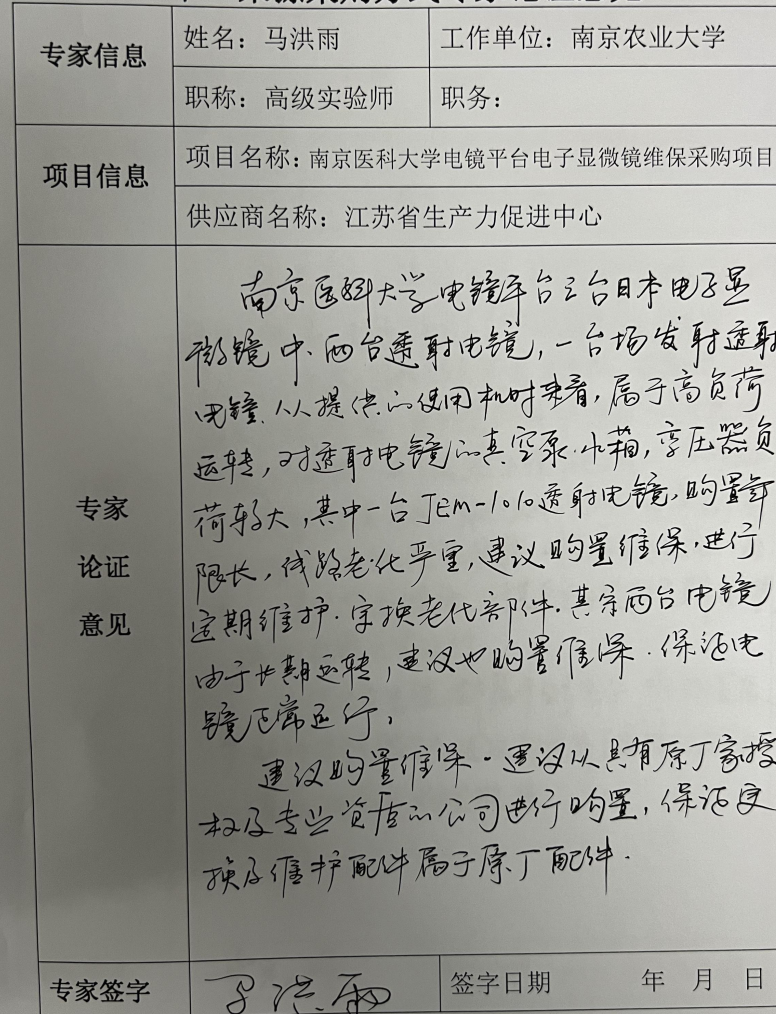 专家信息
姓名：马洪雨
工作单位：南京农业大学
职称：高级实验师
职务：
项目信息
项目名称：南京医科大学电镜平台电子显微镜维保采购项目
供应商名称：江苏省生产力促进中心
专家
论证
意见
南京医科大学电镜平台三台日本电子显
微镜中、两台透射电镜，一台场发射透射
电镜。从提供的使用机时来看，属于高负荷
运转，对透射电镜的真空泵、水箱，变压器负
荷较大，其中一台JEM-1010透射电镜，购置年
限长，线路老化严重，建议购置维保，进行
定期维护．定换老化部件．其余两台电镜
由于长期运转，建议也购置维保．保证电
镜正常运行。
建议购置维保．建议从具有原厂家授
权及专业资质的公司进行购置，保证更
换及维护配件属于原厂配件．
专家签字
马洪雨
签字日期
年 月 日